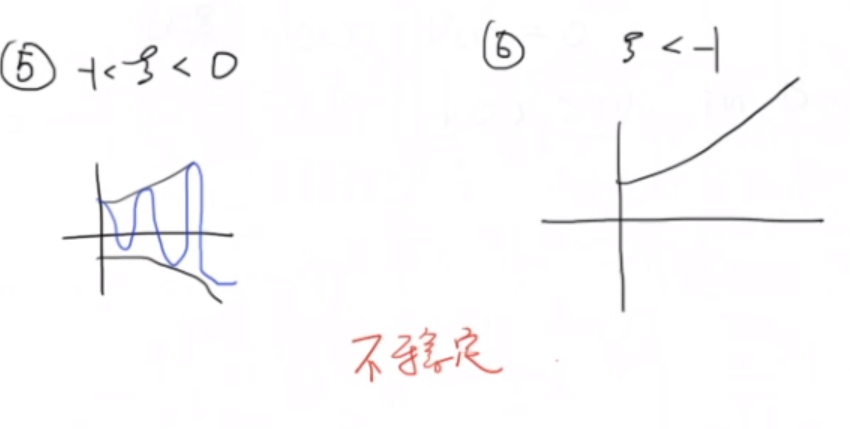 ⑤ -1<ξ<0
⑥ ξ<-1
不稳定